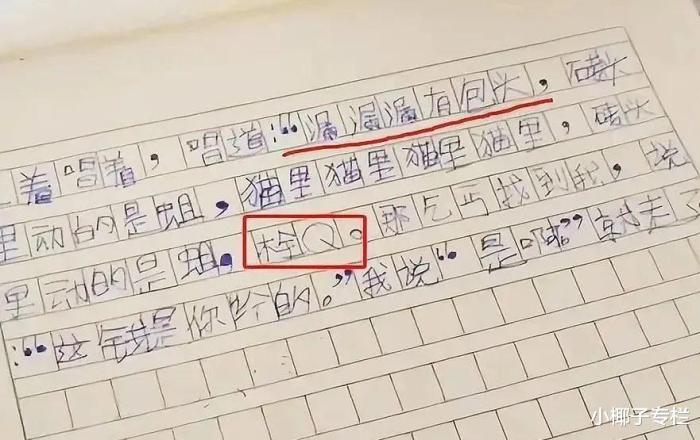 着唱着，唱道：“漏漏漏有包头，砖头
里动的是蛆，猫里猫里猫里猫里，砖头
里动的是蛆，栓Q。那乞丐找到我，说
：“这钱是你给的。”我说“是啊”就走了
小椰子专栏